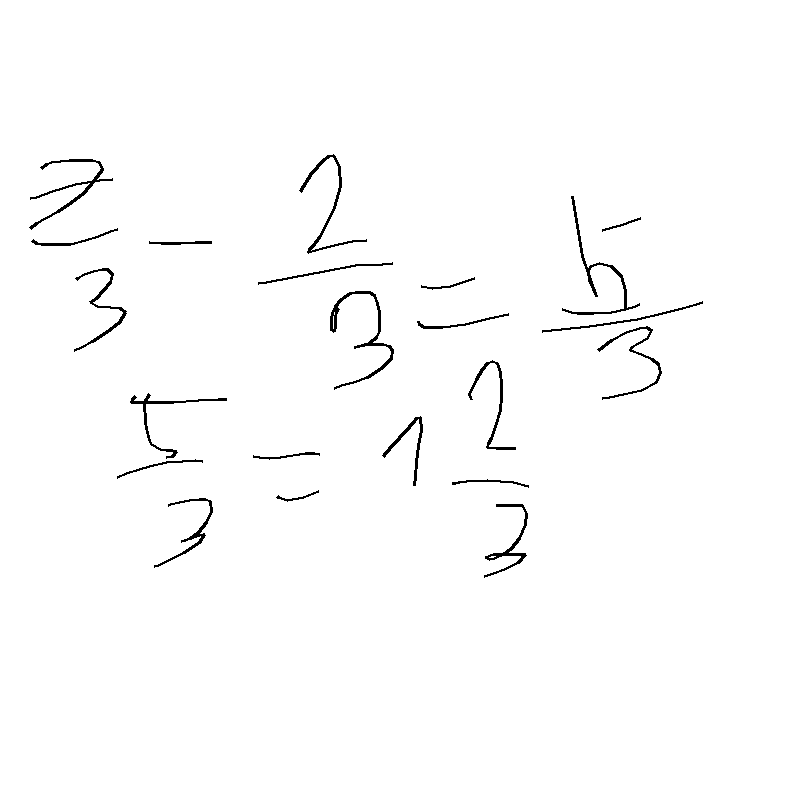 7/3 - 2/3 = 5/3
5/3 = 1 2/3